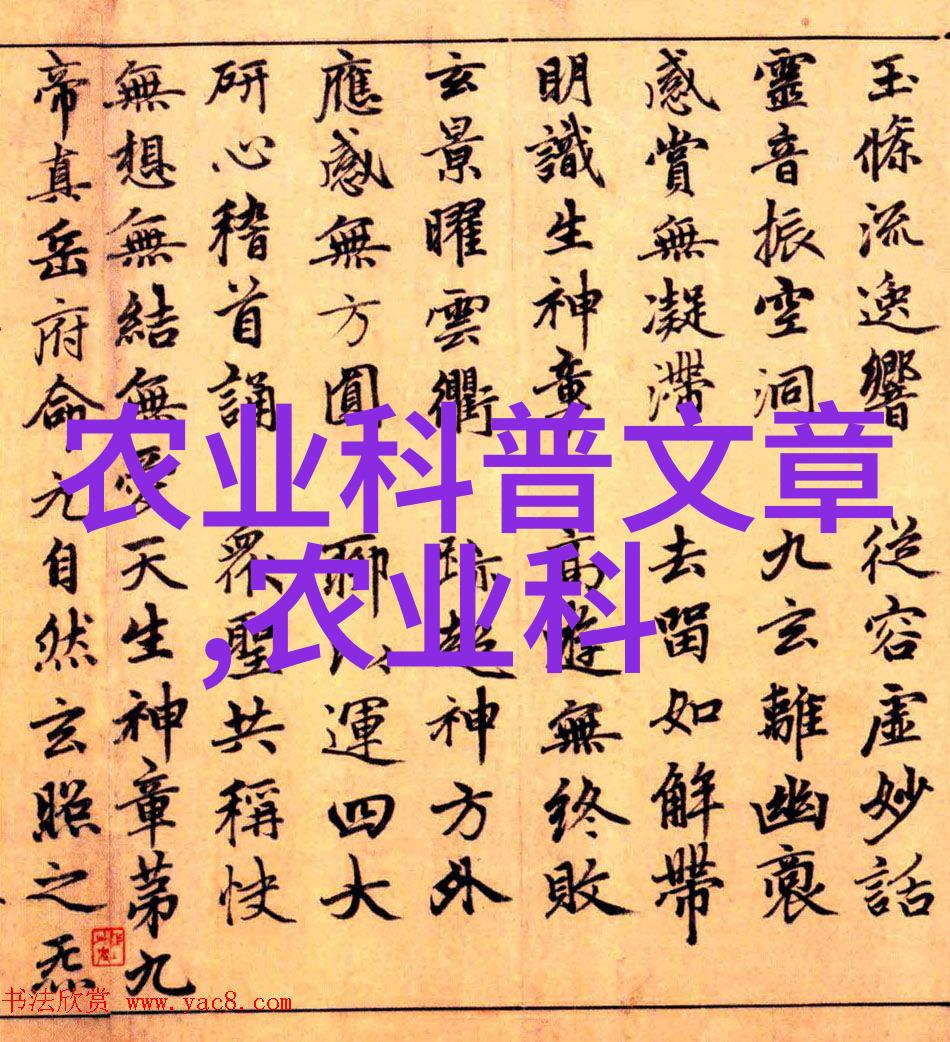 玉條流逸響 從容虛妙話
靈音振空洞 九玄離幽
感賞無凝滯 去留如解帶
明識生神章 高遊無終敗
玄景曜雲衢 跡超神方外
應感無方圓 聊以運四大
研心稽首誦 衆聖共稱快
無想無結無愛天生神章第九
帝真岳府命元自然玄照之炁
农业科普文章
,农业科
书法欣赏 www.yac8.com